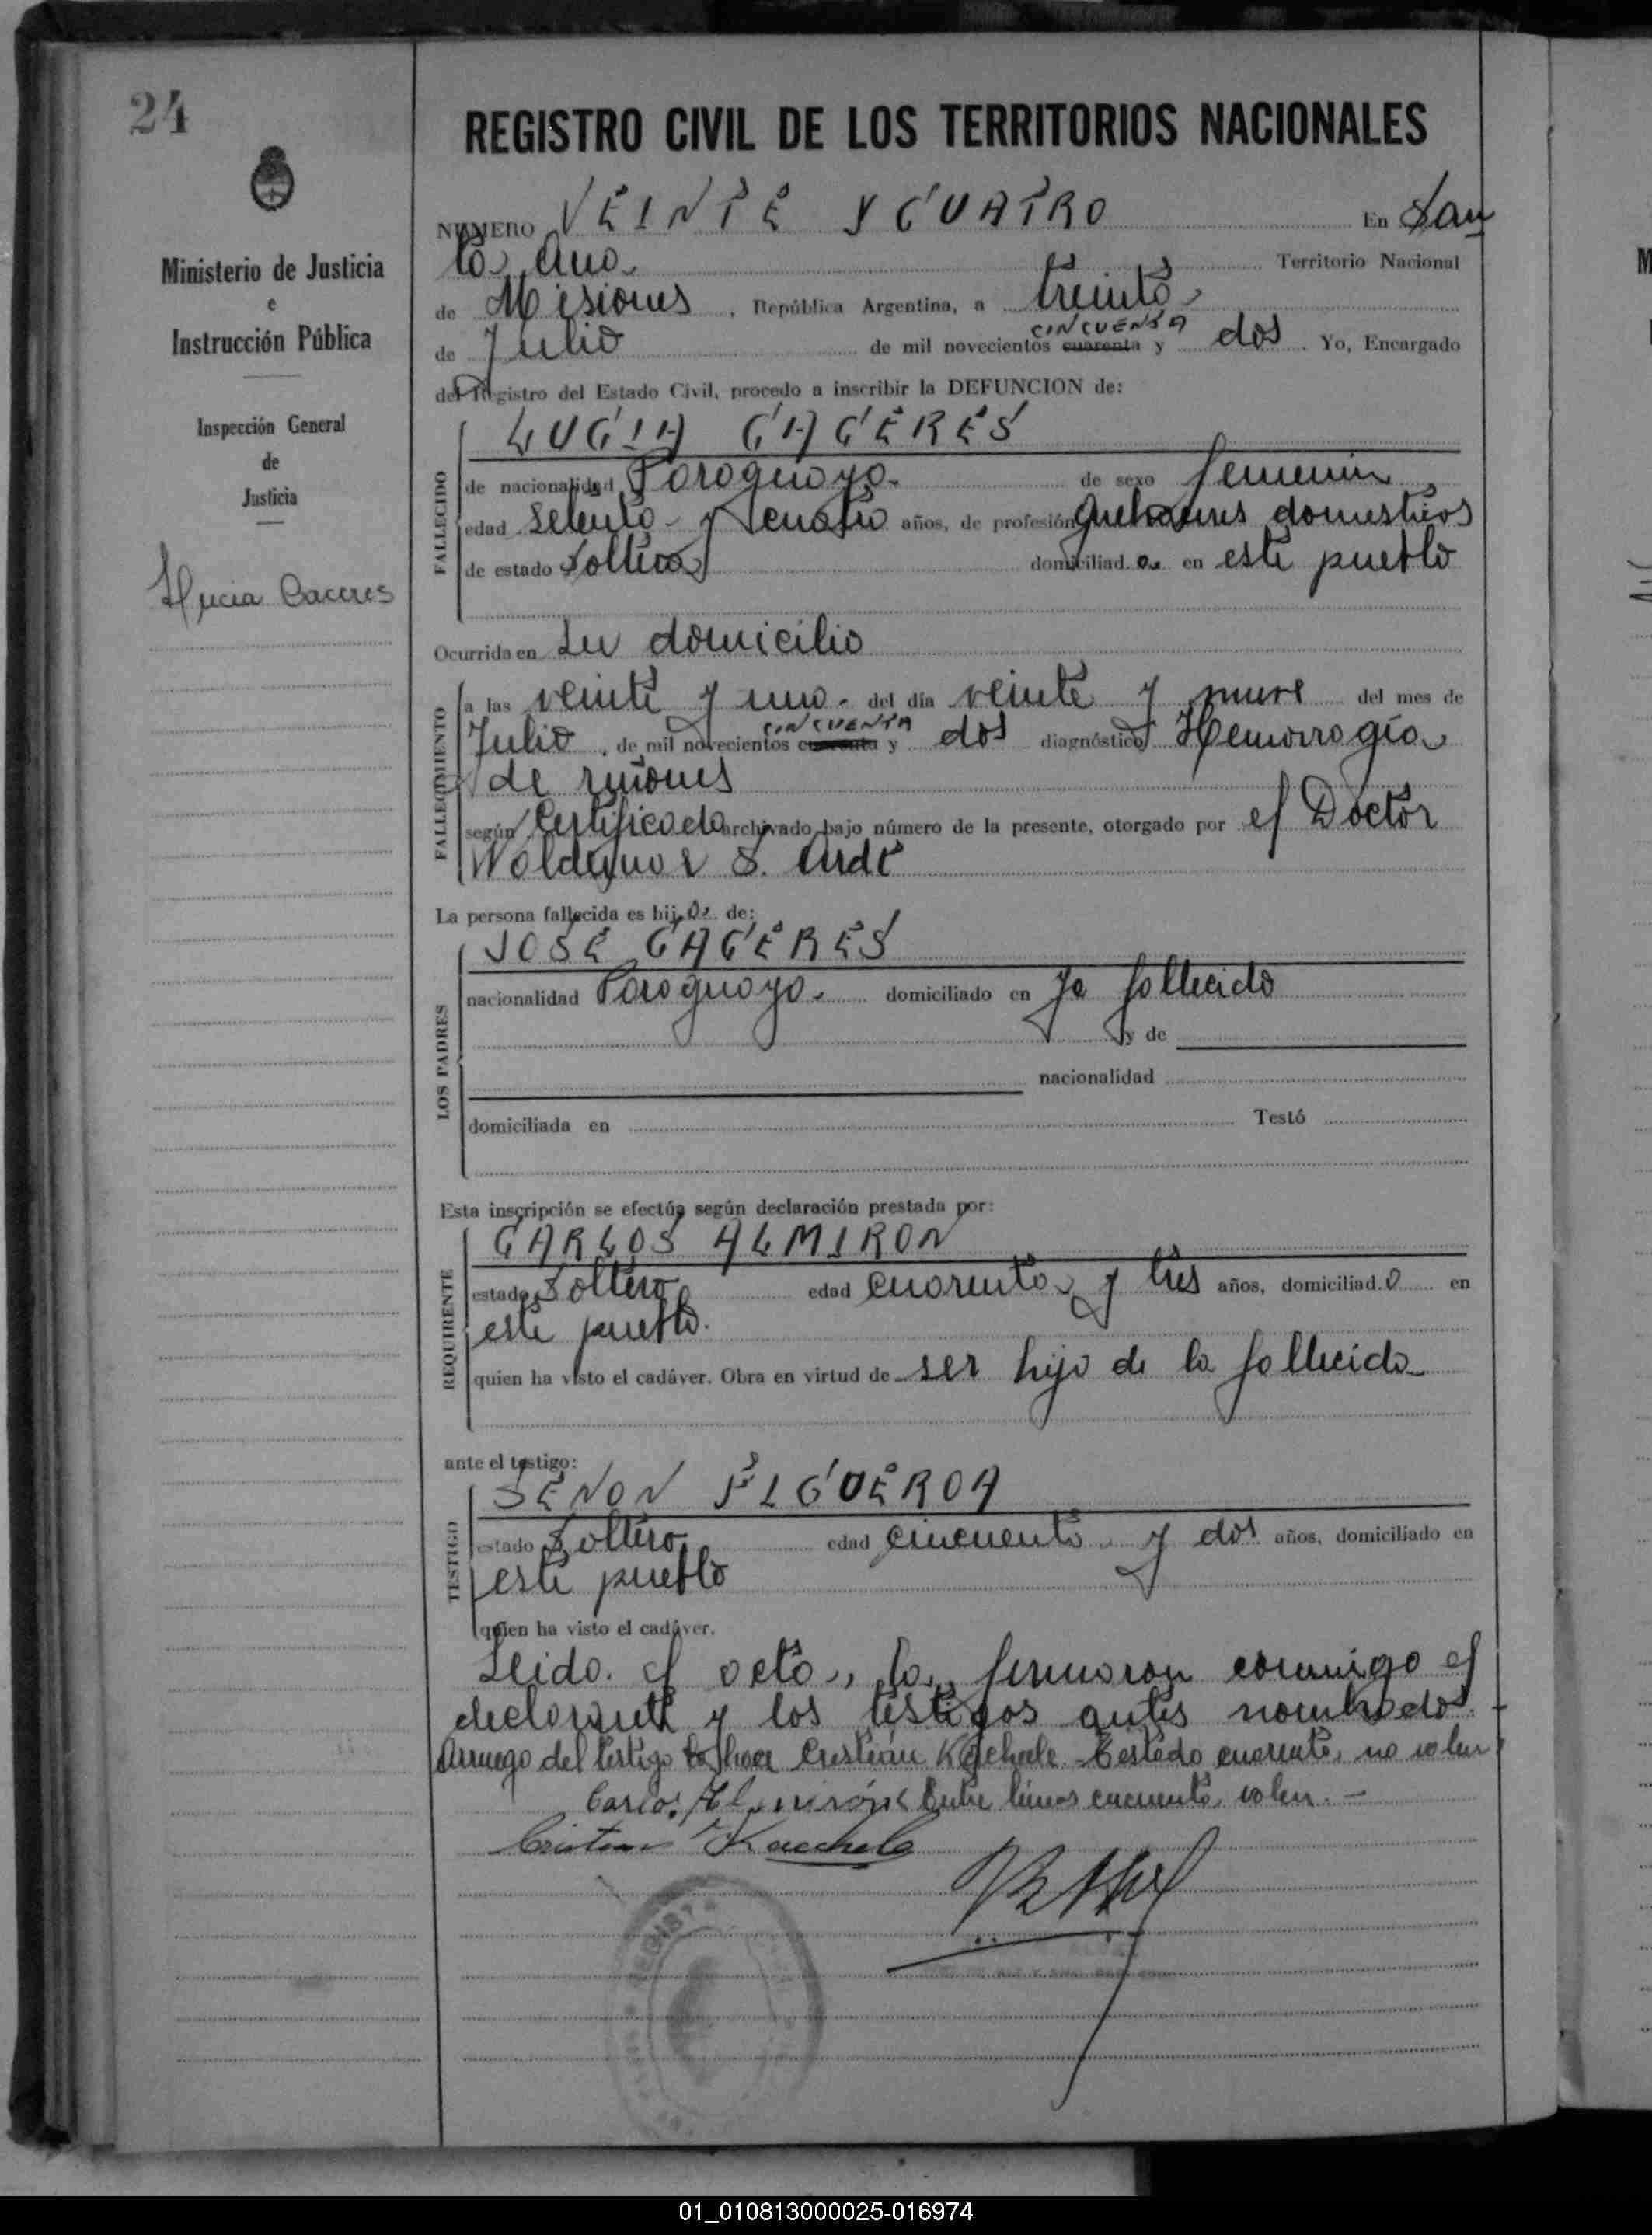 24
REGISTRO CIVIL DE LOS TERRITORIOS NACIONALES
Ministerio de Justicia
e
Instrucción Pública
Inspección General
de
Justicia
Lucia Caceres
NUMERO VEINTE Y CUATRO En San
ta Ana Territorio Nacional
de Misiones, República Argentina, a treinta
de Julio de mil novecientos CINCUENTA cuarenta y dos. Yo, Encargado
del Registro del Estado Civil, procedo a inscribir la DEFUNCION de:
FALLECIDO
LUCIA CACERES
de nacionalidad Paraguaya de sexo femenin
edad setenta y cuatro años, de profesión quehaceres domesticos
de estado Soltera domiciliad a en este pueblo
Ocurrida en su domicilio
FALLECIMIENTO
a las veinte y una del día veinte y nueve del mes de
Julio, de mil novecientos CINCUENTA cuarenta y dos diagnóstico Hemorragia
de riñones
según Certificado archivado bajo número de la presente, otorgado por el Doctor
Waldemar S. Ardt
La persona fallecida es hija de:
LOS PADRES
JOSE CACERES
nacionalidad Paraguaya domiciliado en Ja fallecido
y de
nacionalidad
domiciliada en Testó
Esta inscripción se efectúa según declaración prestada por:
REQUIRENTE
CARLOS ALMIRON
estado Soltero edad cuarenta y tres años, domiciliad o en
este pueblo.
quien ha visto el cadáver. Obra en virtud de ser hijo de la fallecida
ante el testigo:
TESTIGO
SENON FIGUEROA
estado Soltero edad cincuenta y dos años, domiciliado en
este pueblo
quien ha visto el cadáver.
Leido el acta, la firmaron conmigo el
declarante y los testigos antes nombrados.
Arruego del testigo lo hace Cristián Kaechele - Testado cuarenta, no valen
Carlos Almirón Entre lineas cincuenta, valen. -
Cristian Kaechele
01_010813000025-016974